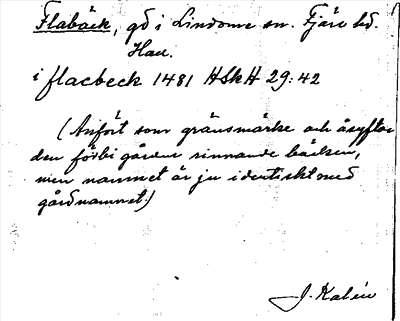 Flabäck, gd i Lindome sn. Fjäre hd.
Hall.
i flacbeck 1481 HSkH 29:42
(Anfört som gränsmärke och åsyftar
den förbi gården rinnande bäcken,
men namnet är ju identiskt med
gårdnamnet.)
J. Kalén